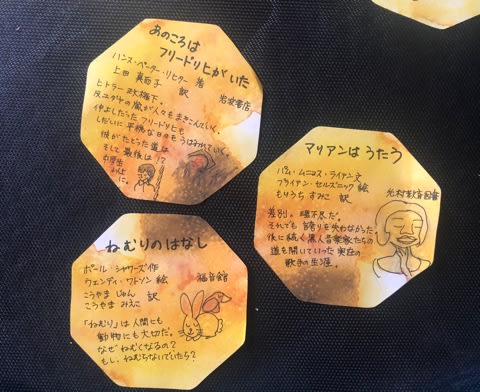 あのころは
フリードリヒがいた
ハンス・ペーター・リヒター 著
上田 真而子 訳
岩波書店
ヒトラー政権下。
反ユダヤの嵐が人々もまきこんでいく。
仲よしだったフリードリヒも
しだいに平穏な日々もうばわれていく。
彼がたどった道は
そして最後は!?
中学生
以上
に。
マリアンは うたう
パム・ムニョス・ライアン 文
ブライアン・セルズニック 絵
もりうち すみこ 訳
光村教育図書
差別。理不尽だ。
それでも誇りを失わなかった。
後に続く黒人音楽家たちの
道を開いていった実在の
歌手の生涯。
ねむりのはなし
ポール・シャワーズ 作
ウェンディ・ワトソン 絵
こうやま じゅん
こうやま みえこ 訳
福音館
「ねむり」は人間にも
動物にも大切だ。
なぜねむくなるの?
もし、ねむらないでいたら?